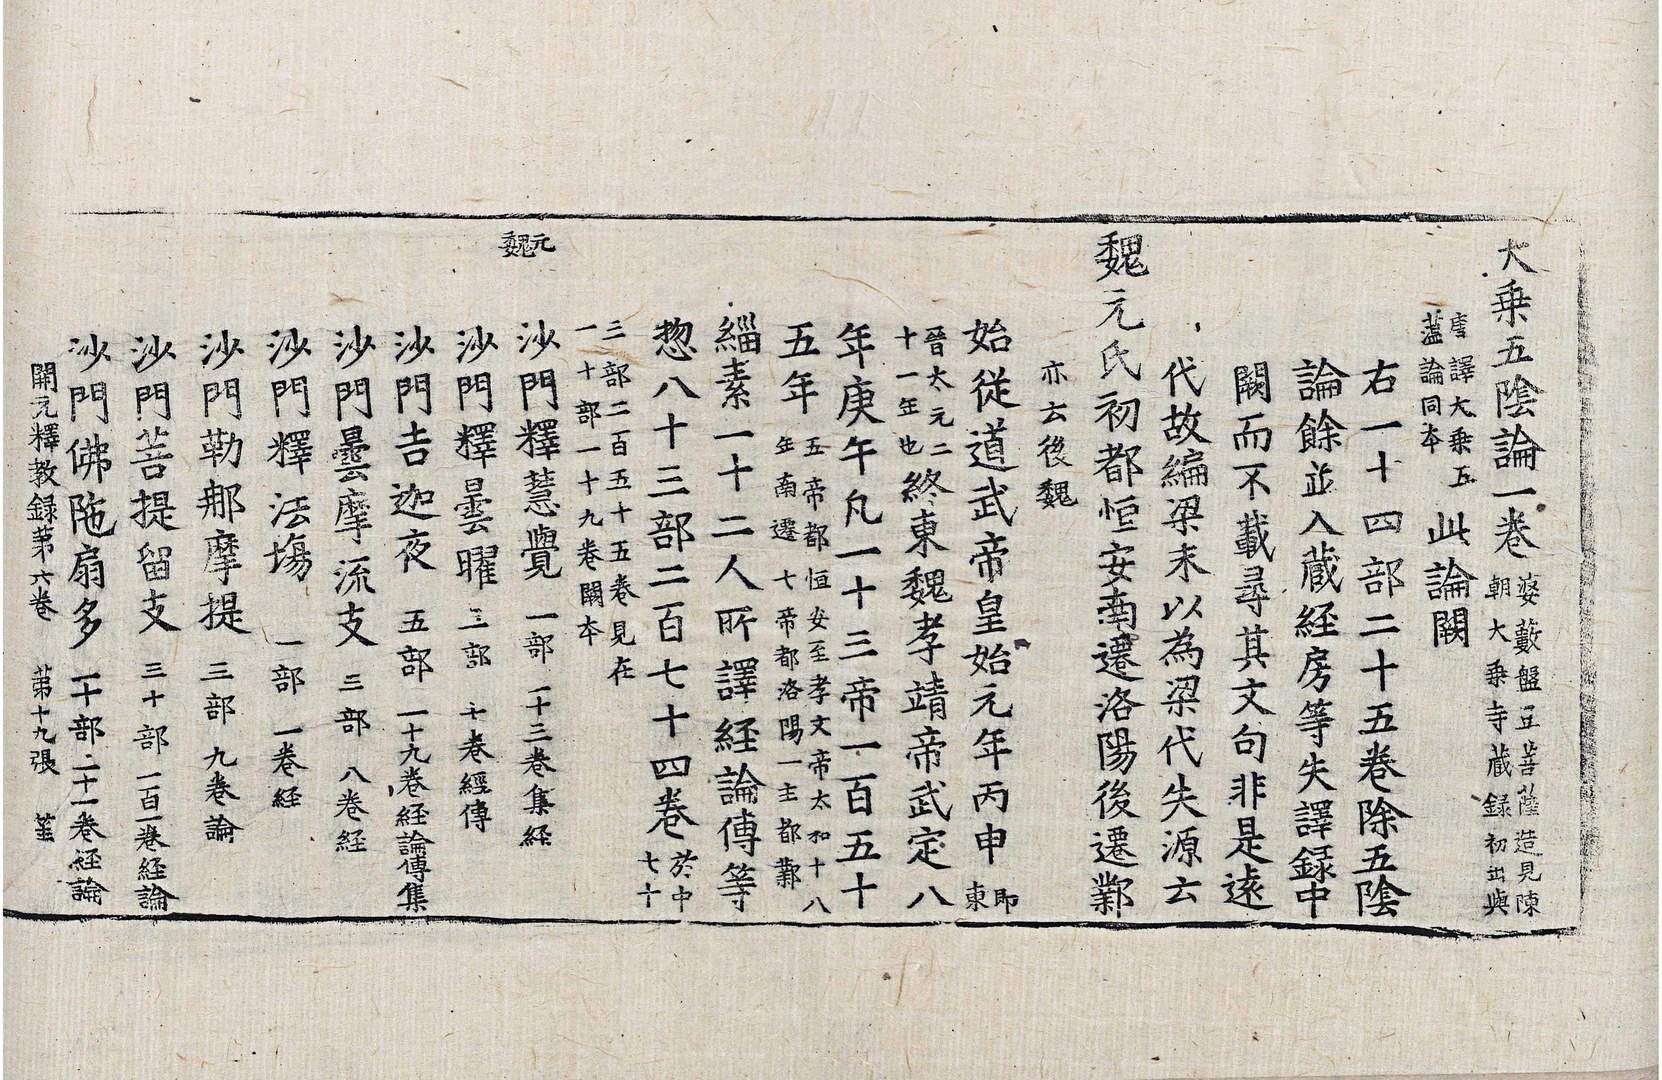 大乗五隂論一巻 婆藪盤豆菩薩造見陳
朝大乗寺藏録初出與
唐譯大乗五
蕴論同夲 此論闕
右一十四部二十五巻除五隂
論餘並入藏経房等失譯録中
闕而不載尋其文句非是逺
代故編梁末以為梁代失源云
魏元氏初都恒安南遷洛陽後遷鄴
亦云後魏
始従道武帝皇始元年丙申 即
東
晉太元二
十一年也 終東魏孝靖帝武定八
年庚午凡一十三帝一百五十
五年 五帝都恒安至孝文帝太和十八
年南遷七帝都洛陽一主都鄴
緇素一十二人所譯経論傳等
惣八十三部二百七十四巻 於中
七十
三部二百五十五巻見在
一十部一十九巻闕夲
元
魏
沙門釋慧覺 一部一十三巻集経
沙門釋曇曜 三部七巻經傳
沙門吉迦夜 五部一十九巻経論傳集
沙門曇摩流支 三部八巻経
沙門釋法塲 一部一巻経
沙門勒那摩提 三部九巻論
沙門菩提留支 三十部一百一巻経論
沙門佛陁扇多 一十部二十一巻経論
開元釋教録第六巻 第十九張 笙